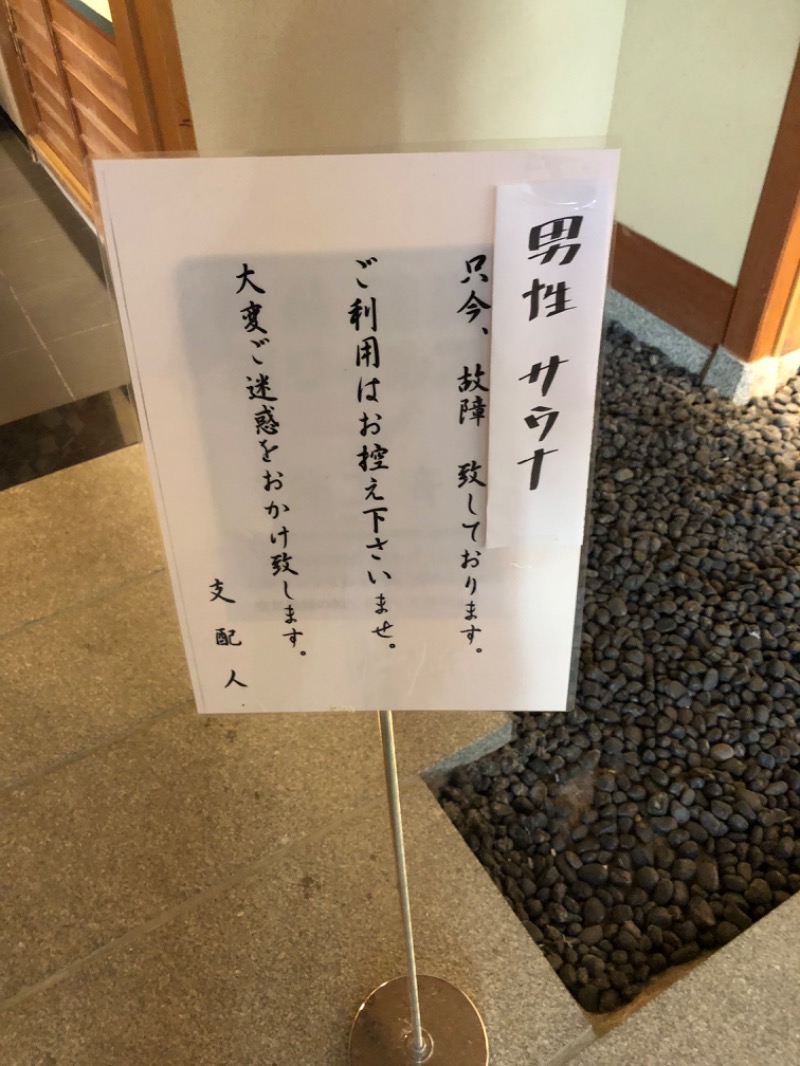 男性 サウナ
只今、 故障 致しております。
ご利用はお控え下さいませ。
大変ご迷惑をおかけ致します。
支配人